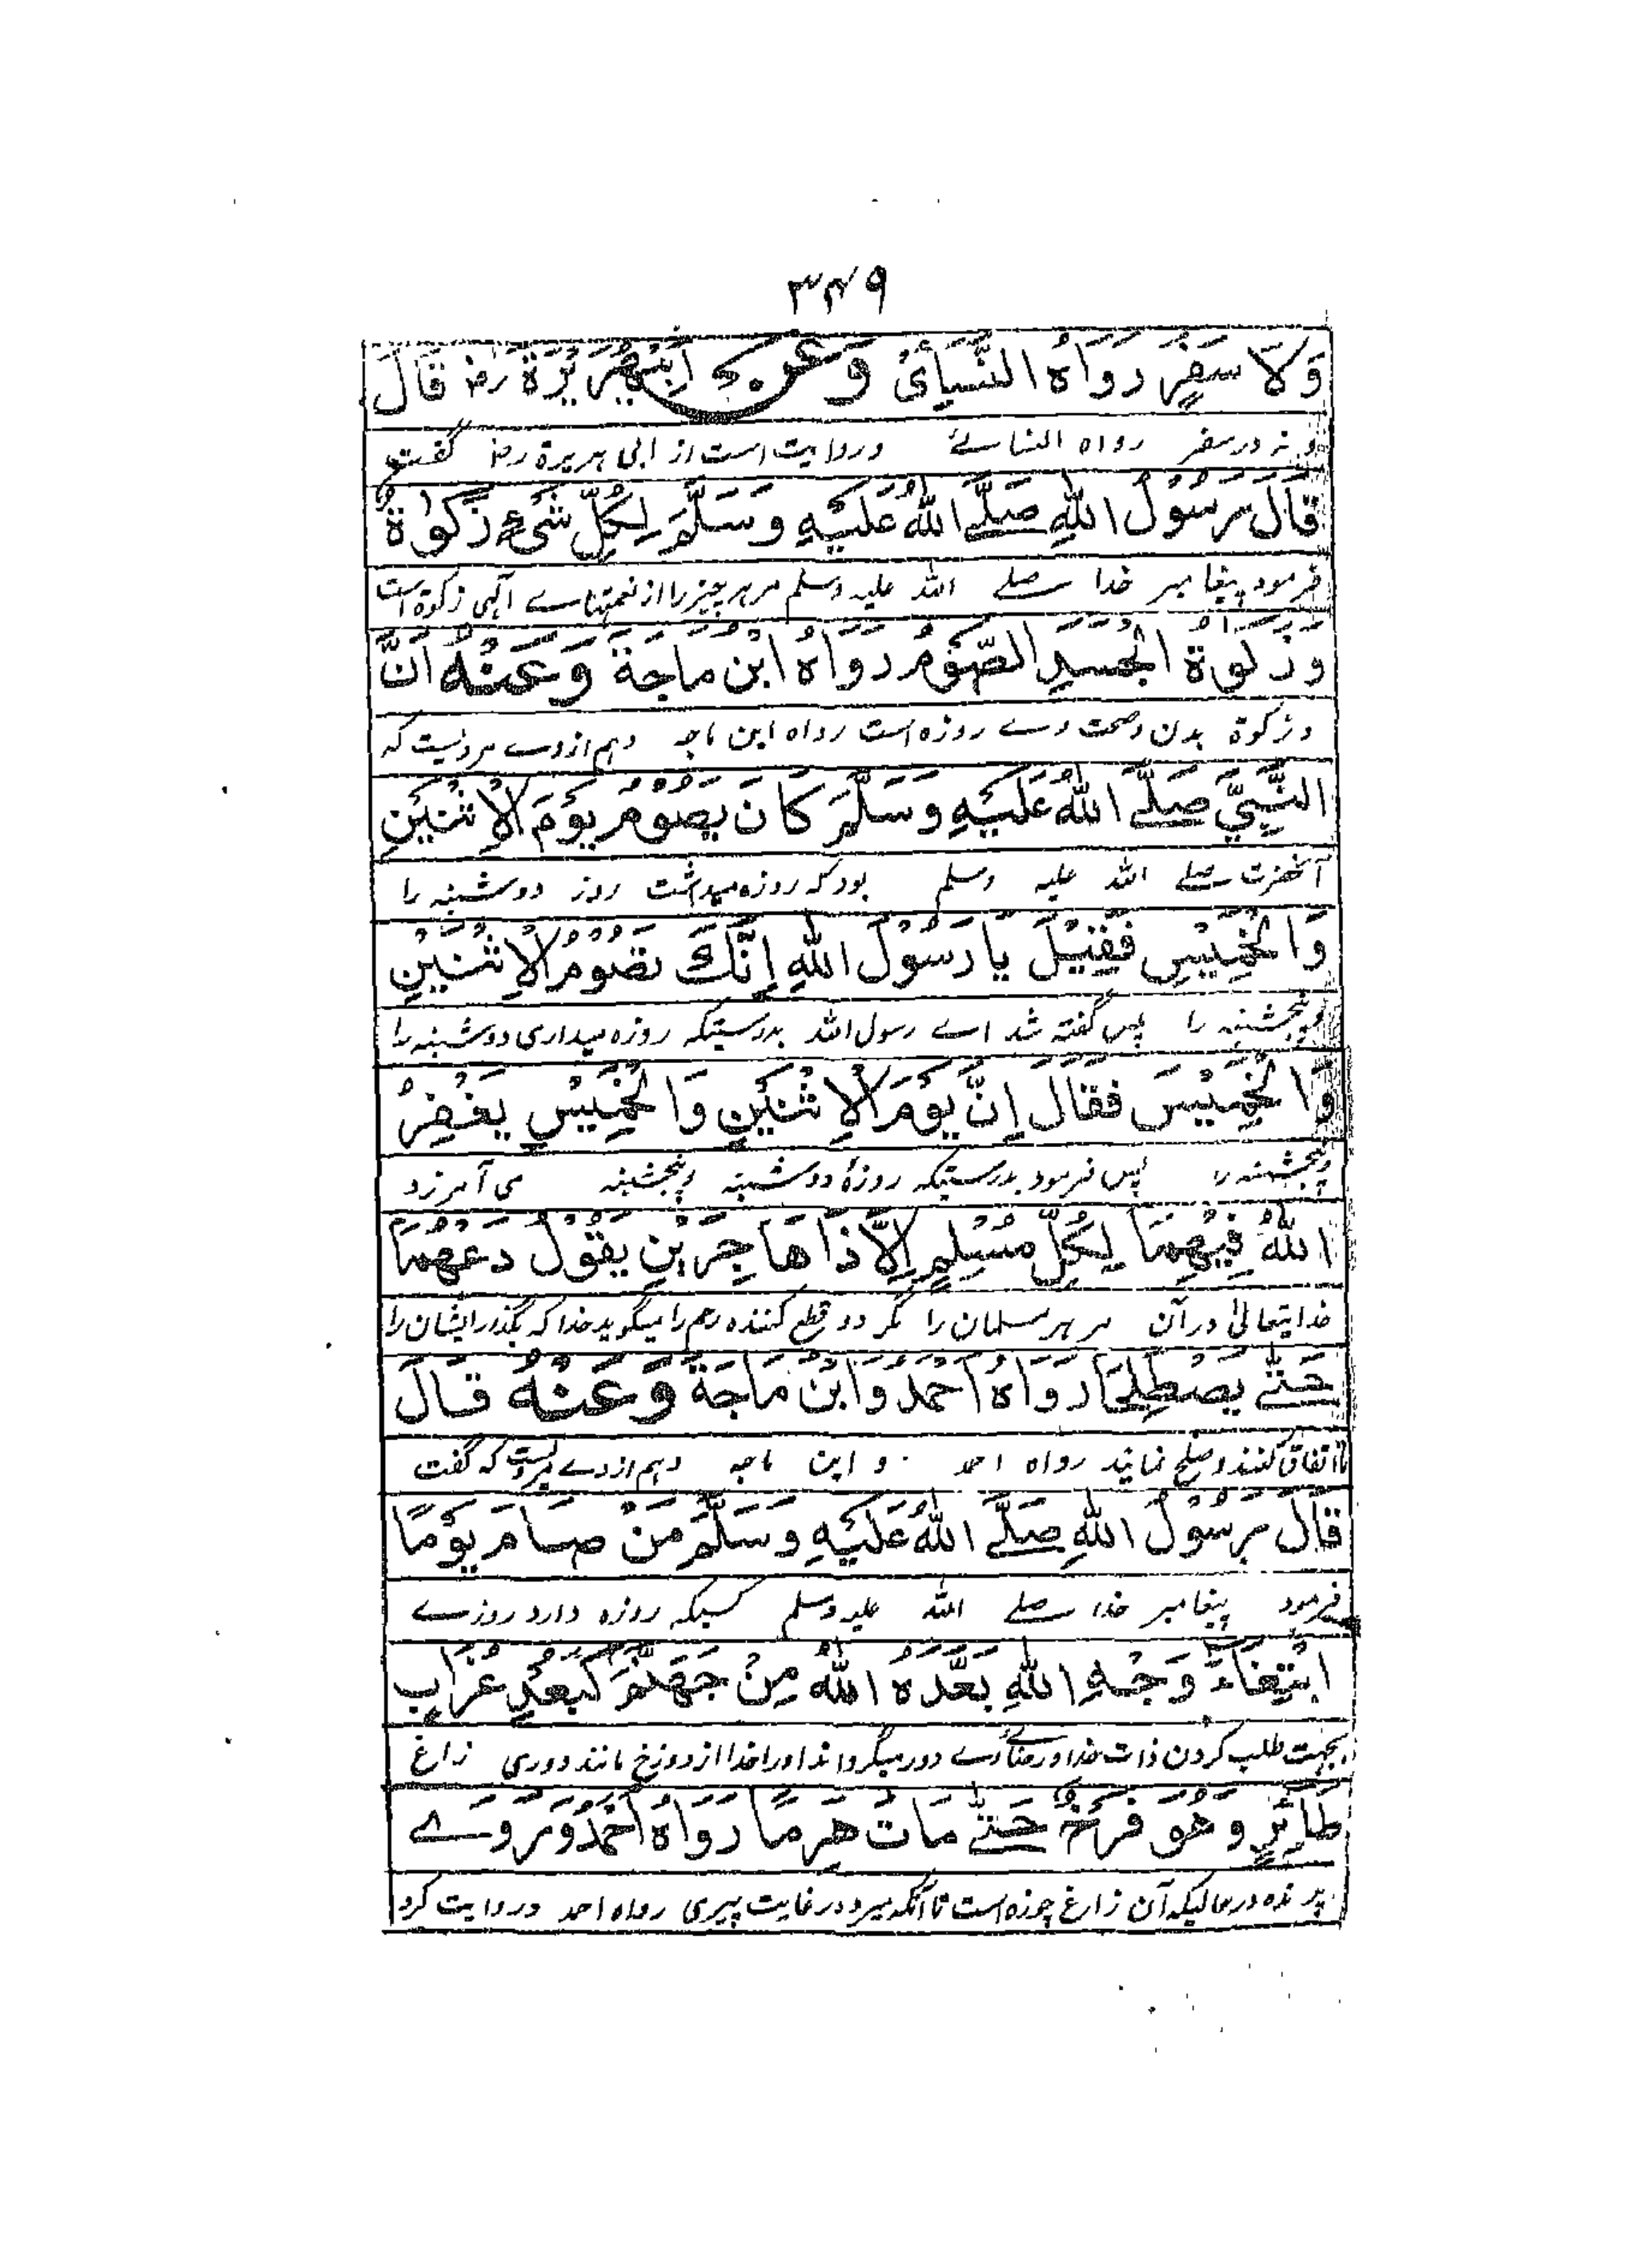 ۳۴۹
وَلَا سَفَرٍ رَوَاهُ النَّسَائِيُّ وَعَنْ اَبِيْ هُرَيْرَةَ رض قَالَ
و نہ در سفر رواہ النسائے وروایت است از ابی ہریرۃ رض گفت
قَالَ رَسُوْلُ اللهِ صَلَّے اللهُ عَلَيْهِ وَسَلَّمَ لِكُلِّ شَيْءٍ زَكٰوةٌ
فرمود پیغامبر خدا صلے اللہ علیہ وسلم مر ہر چیز را از نعمتہاے الہی زکوۃ است
وَزَكٰوةُ الْجَسَدِ الصَّوْمُ رَوَاهُ ابْنُ مَاجَةَ وَعَنْهُ اَنَّ
و زکوۃ بدن و صحت وے روزہ است رواہ ابن ماجہ وہم از وے مرویست کہ
النَّبِيَّ صَلَّے اللهُ عَلَيْهِ وَسَلَّمَ كَانَ يَصُوْمُ يَوْمَ الْاِثْنَيْنِ
آنحضرت صلے اللہ علیہ وسلم بود کہ روزہ میداشت روز دوشنبہ را
وَالْخَمِيْسِ فَقِيْلَ يَا رَسُوْلَ اللهِ اِنَّكَ تَصُوْمُ الْاِثْنَيْنِ
و پنجشنبہ را پس گفتہ شد اے رسول اللہ بدرستیکہ روزہ میداری دوشنبہ را
وَالْخَمِيْسَ فَقَالَ اِنَّ يَوْمَ الْاِثْنَيْنِ وَالْخَمِيْسِ يَغْفِرُ
و پنجشنبہ را پس فرمود بدرستیکہ روزۂ دوشنبہ و پنجشنبہ می آمرزد
اللهُ فِيْهِمَا لِكُلِّ مُسْلِمٍ اِلَّا ذَا هَاجِرَيْنِ يَقُوْلُ دَعْهُمَا
خدایتعالیٰ در آن مر ہر مسلمان را مگر دو قطع کنندہ رحم را میگوید خدا کہ بگذار ایشان را
حَتّٰے يَصْطَلِحَا رَوَاهُ اَحْمَدُ وَابْنُ مَاجَةَ وَعَنْهُ قَالَ
تا اتفاق کنند و صلح نمایند رواہ احمد و ابن ماجہ وہم از وے مرویست کہ گفت
قَالَ رَسُوْلُ اللهِ صَلَّے اللهُ عَلَيْهِ وَسَلَّمَ مَنْ صَامَ يَوْمًا
فرمود پیغامبر خدا صلے اللہ علیہ وسلم کسیکہ روزہ دارد روزے
ابْتِغَاءَ وَجْهِ اللهِ بَعَّدَهُ اللهُ مِنْ جَهَنَّمَ كَبُعْدِ غُرَابٍ
بجہت طلب کردن ذات خدا و رضائے وے دور میگرداند او را خدا از دوزخ مانند دوری زارغ
طَائِرٍ وَهُوَ فَرْخٌ حَتّٰے مَاتَ هَرِمًا رَوَاهُ اَحْمَدُ وَرَوٰے
پرندہ در حالیکہ آن زارغ چوزہ است تا آنکہ میرد در غایت پیری رواہ احمد و روایت کرد